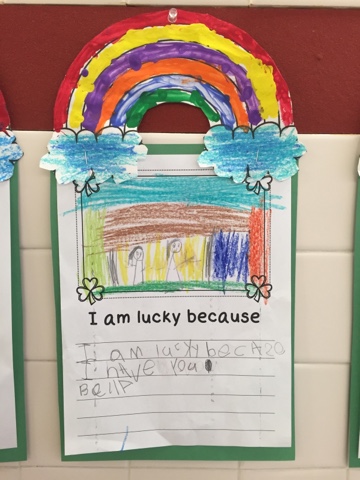 I am lucky because
I am lucky becaze
I have you
Bellp